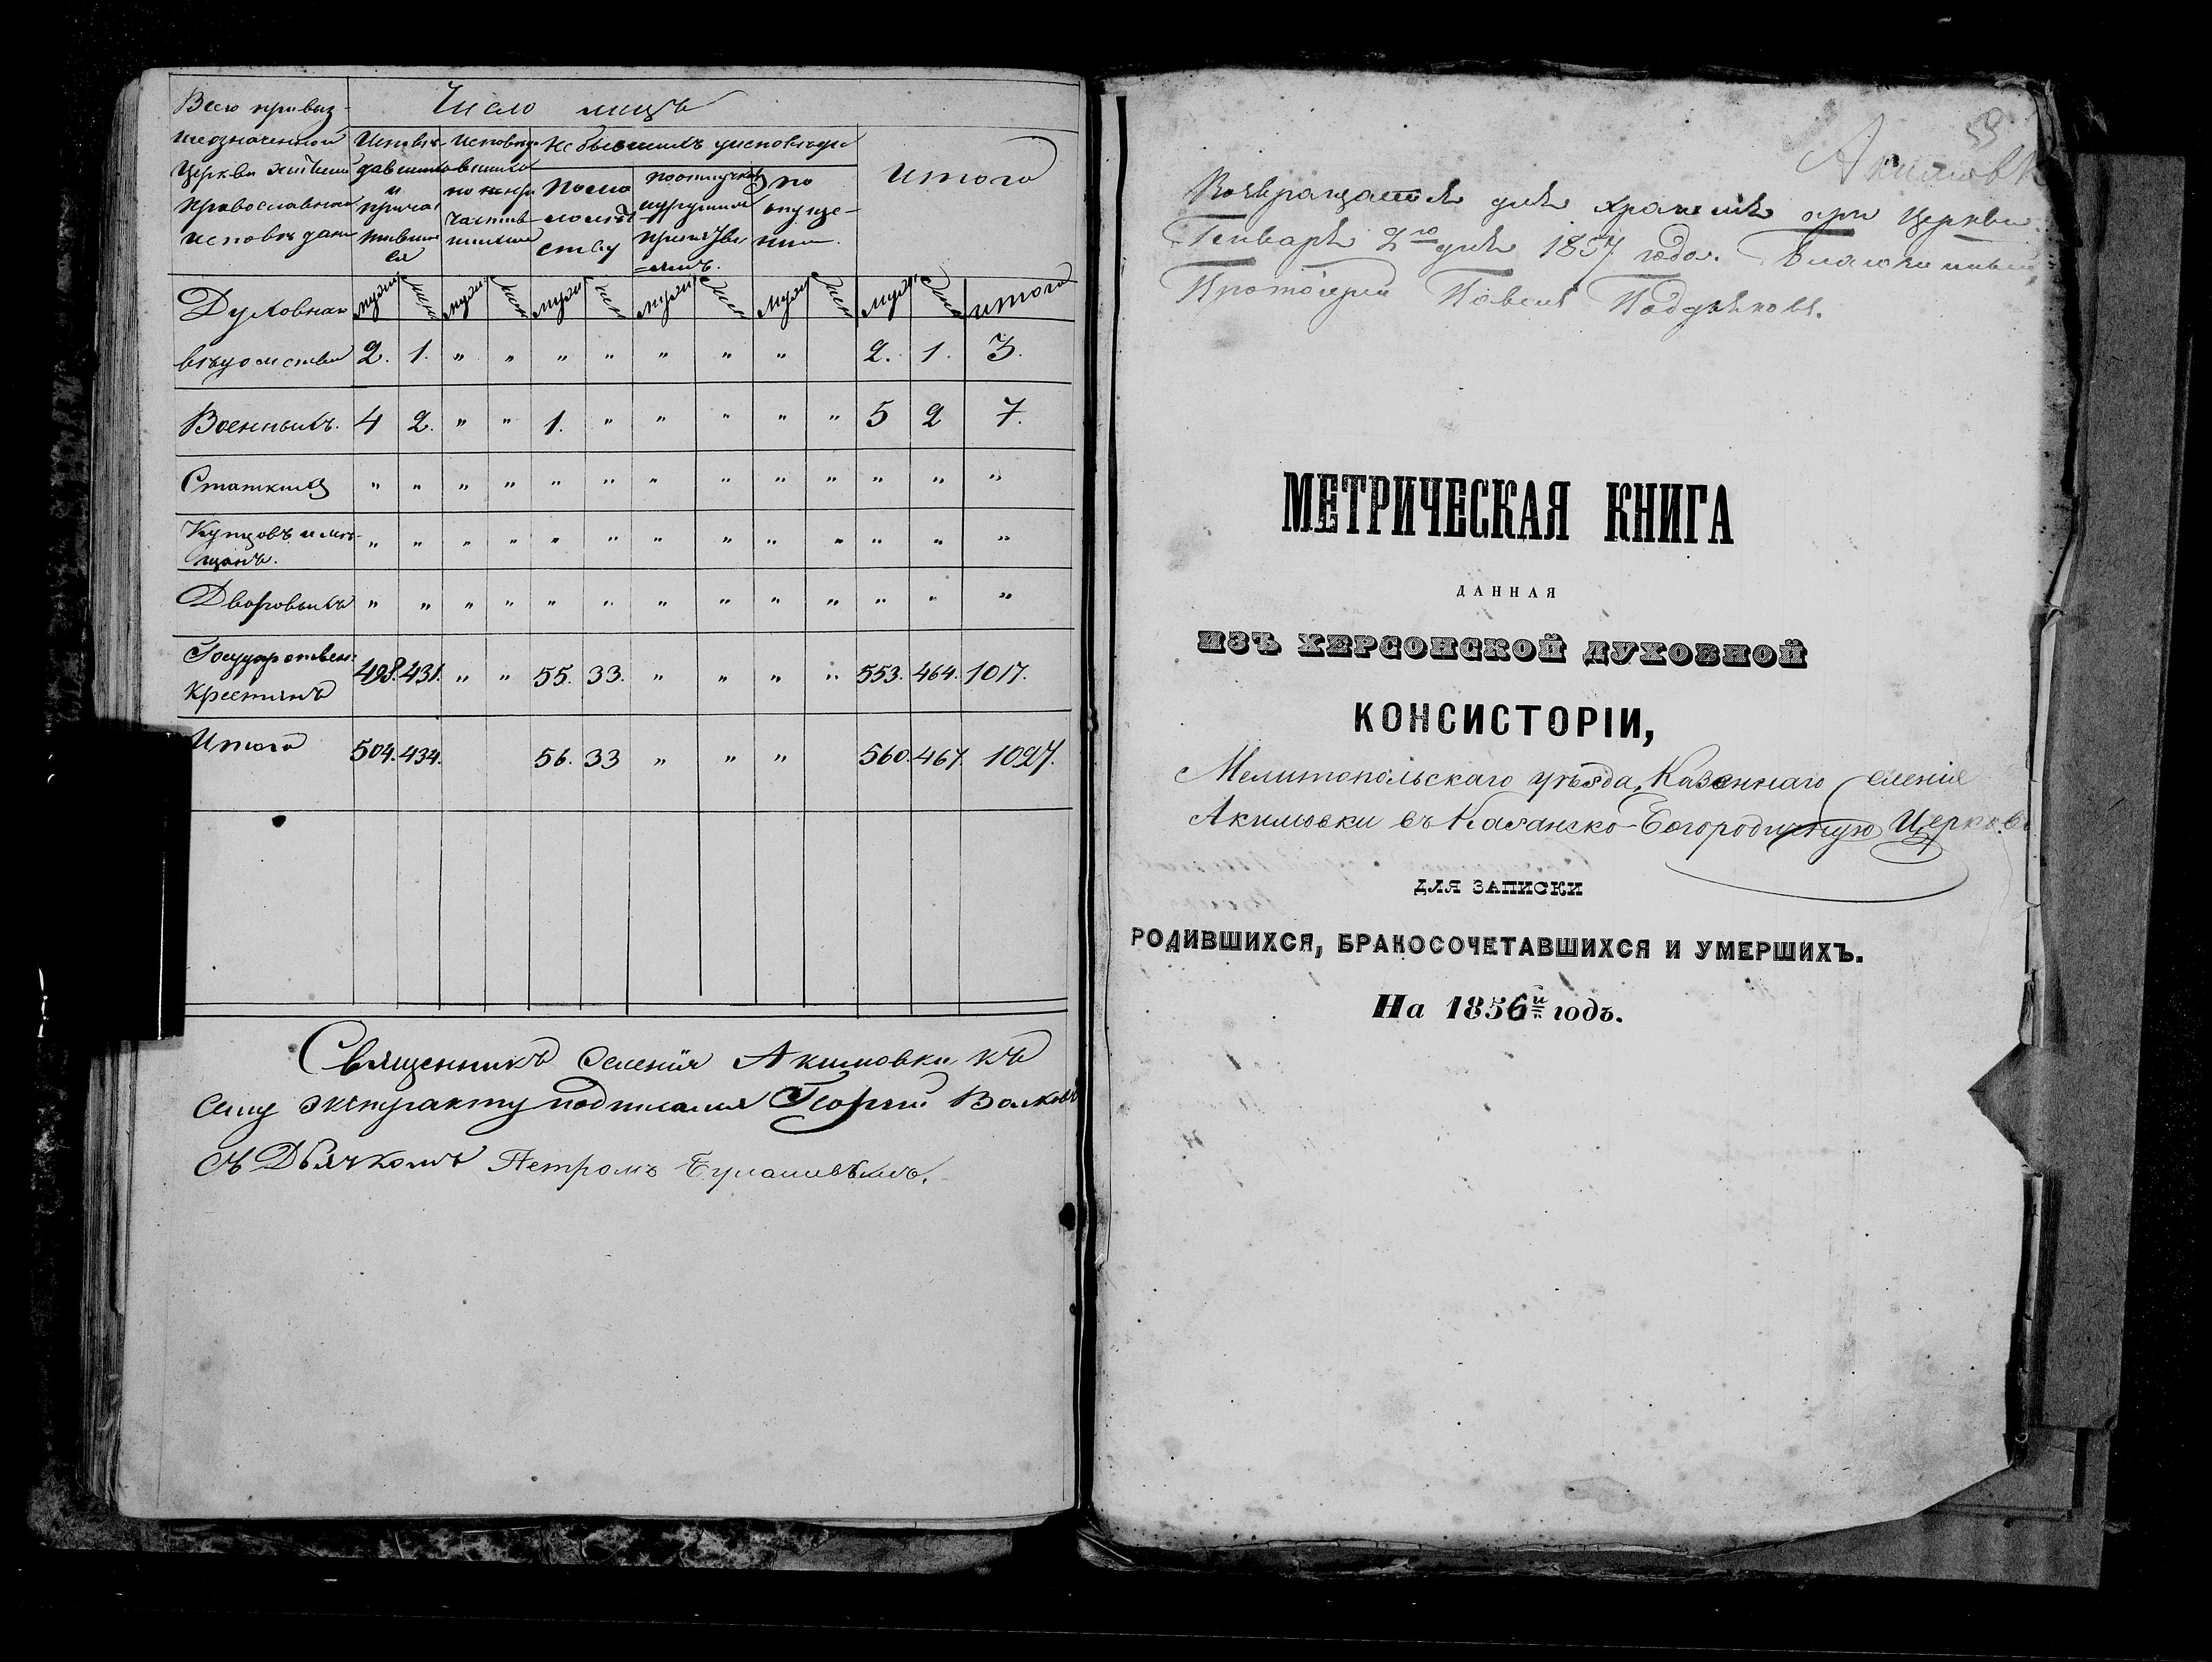 Всего при выз-
шеозначенной
Церкви жителей
православнаго
исповѣдания
Число лицъ
Исповѣ-
давшихся
и
прича-
тивших
ся
Исповѣдо-
вавшихся
но непри-
частив-
шихся
Не бывшихъ у исповѣди
По мало-
лѣт
ству
по отлучкамъ
и другимъ
причи
намъ.
по
опуще-
нию.
Итого
муж жен муж жен муж жен муж жен муж жен муж жен итого
Духовнаго
вѣдомства 2. 1. " " " " " " " 2. 1. 3.
Военныхъ. 4 2. " " 1. " " " " " 5 2 7.
Статскихъ " " " " " " " " " " " " "
Купцовъ и мѣ-
щанъ. " " " " " " " " " " " " "
Дворовыхъ " " " " " " " " " " " " "
Государствен:
Крестьянъ 498. 431. " " 55. 33. " " " " 553. 464. 1017.
Итого 504. 434. 56. 33 " " " 560. 467. 1027.
Священникъ Селенія Акимовки къ
сему экстракту подписался Георгій Волковъ
съ Дьячкомъ Петромъ
Акимовк
Возвращается для храненія при Церкви.
Генваря 2го дня 1857 года. Благочинный
Протоіерей Павелъ Поддьяковъ.
МЕТРИЧЕСКАЯ КНИГА
ДАННАЯ
ИЗЪ ХЕРСОНСКОЙ ДУХОВНОЙ
КОНСИСТОРІИ,
Мелитопольскаго уѣзда, Казеннаго Селенія
Акимовки въ Казанско-Богородичную Церковь
ДЛЯ ЗАПИСКИ
РОДИВШИХСЯ, БРАКОСОЧЕТАВШИХСЯ И УМЕРШИХЪ.
На 1856й годъ.